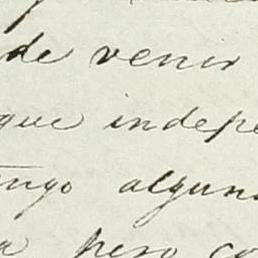 de venir
que indepe
engo alguna
pero co